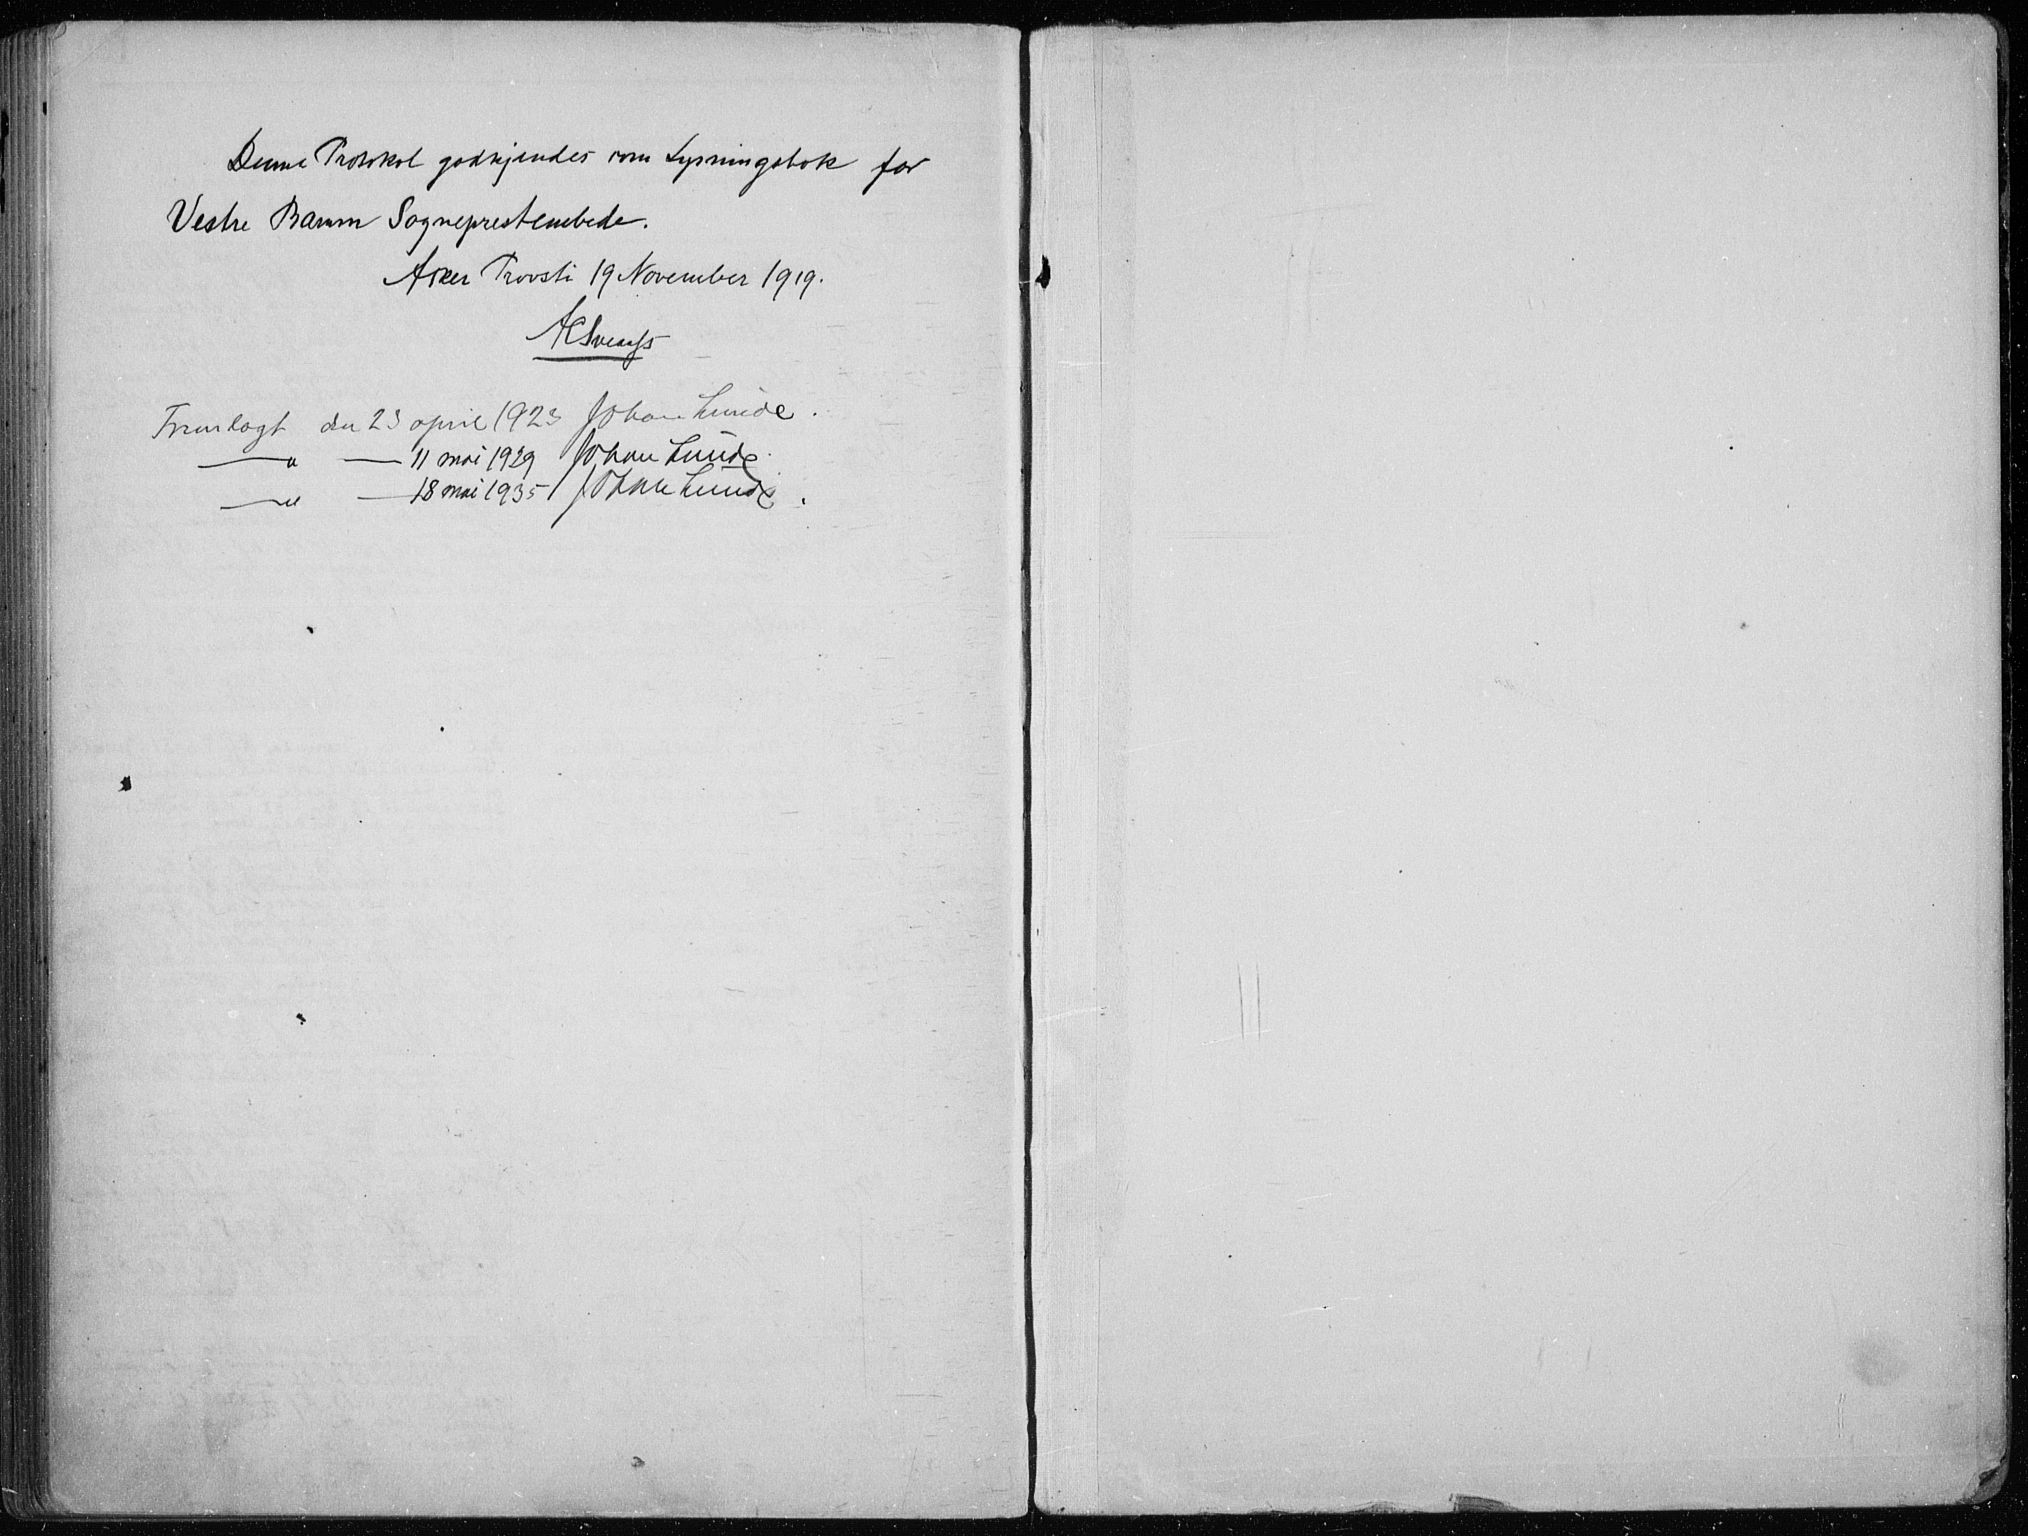 Denne Protokol godkjendes som Lysningsbok for
Vestre Bærum Sogneprestembede.
Asker Provsti 19 November 1919.
Fremlagt den 23 april 1923 Johan Lunde.
—"— — 11 mai 1929 Johan Lunde.
—"— — 18 mai 1935 Johan Lunde.